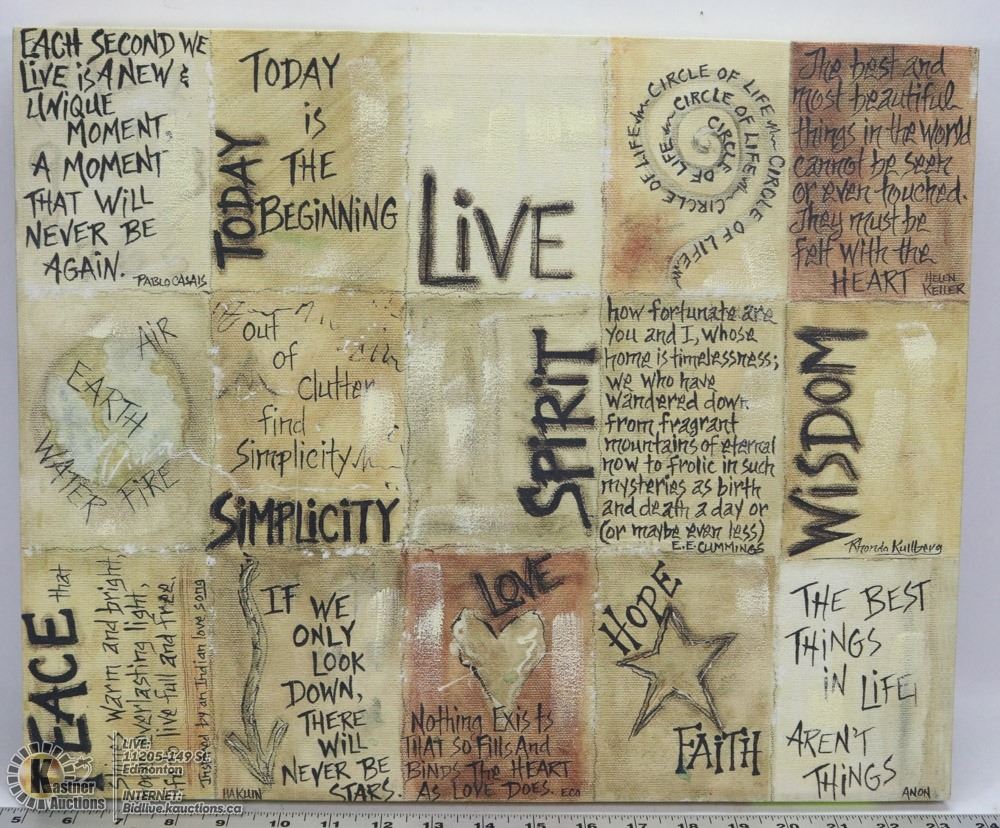 EACH SECOND WE
LiVE iS A NEW &
UNiQUE
MOMENT.
A MOMENT
THAT WiLL
NEVER BE
AGAIN.
PABLO CASALS
TODAY
TODAY
iS
THE
BEGiNNiNG
LiVE
CIRCLE OF LIFE CIRCLE OF LIFE CIRCLE OF LIFE CIRCLE OF LIFE
The best and
most beautiful
things in the world
cannot be seen
or even touched.
They must be
felt with the
HEART
HELEN
KELLER
AIR
EARTH
WATER FIRE
Out
of
Clutter
find
Simplicity
SiMPLiCiTY
SPiRiT
how fortunate are
you and I, whose
home is timelessness;
we who have
wandered down
from fragrant
mountains of eternal
now to frolic in such
mysteries as birth
and death a day or
(or maybe even less)
E.E. CUMMINGS
WiSDOM
Rhonda Kullberg
EACE
that
Warm and bright,
everlasting light,
live full and free.
an Indian love song
iF WE
ONLY
LOOK
DOWN,
THERE
WiLL
NEVER BE
STARS.
HAKUIN
LOVE
Nothing Exists
THAT so Fills And
BiNDS The HEART
AS LOVE DOES. ECO
HOPE
FAiTH
THE BEST
THiNGS
iN LiFE
AREN'T
THiNGS
ANON
Kastner
Auctions
LIVE:
11205-149 St
Edmonton
INTERNET:
Bidlive.kauctions.ca
5 6 7 8 9 10 11 12 13 14 15 16 17 18 19 20 21 22 23 24